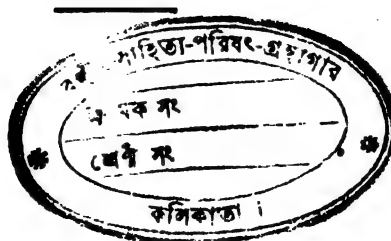 সাহিত্য-পরিষৎ-গ্রন্থাগার
ক সং
শ্রেণী সং
কলিকাতা ।